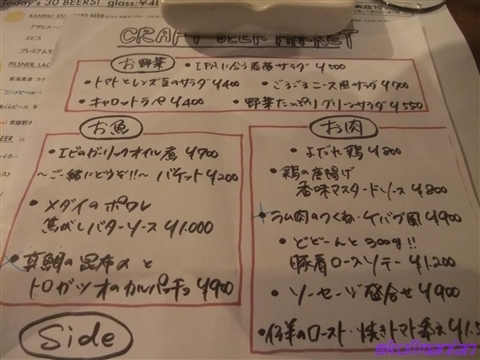 Today's 30 BEERS! glass:¥4
CRAFT BEER MARKET
エビス
プレミアム
PILSNER, LAG
お野菜
• IPAに合う春菊サラダ ¥500
• トマトとレンズ豆のサラダ ¥400
• ごろごろニース風サラダ ¥700
• キャロットラペ ¥400
• 野菜たっぷりグリーンサラダ ¥550
お魚
• エビのガーリックオイル煮 ¥700
〜ご一緒にどうぞ!!〜 バゲット ¥200
• メダイのポワレ
焦がしバターソース ¥1.000
• 真鯛の昆布〆と
トロガツオのカルパッチョ ¥900
お肉
• よだれ鶏 ¥800
• 鶏の唐揚げ
香味マスタードソース ¥800
• ラム肉のつくね・ケバブ風 ¥900
• どどーんと300g!!
豚肩ロースソテー ¥1.200
• ソーセージ盛合せ ¥900
• 仔羊のロースト・焼きトマト添え ¥1.5
Side